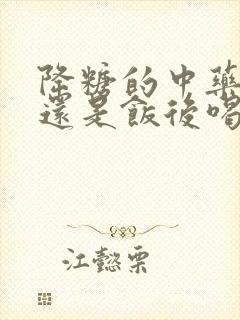 降糖的中藥
還是飯後喝
江懿栗